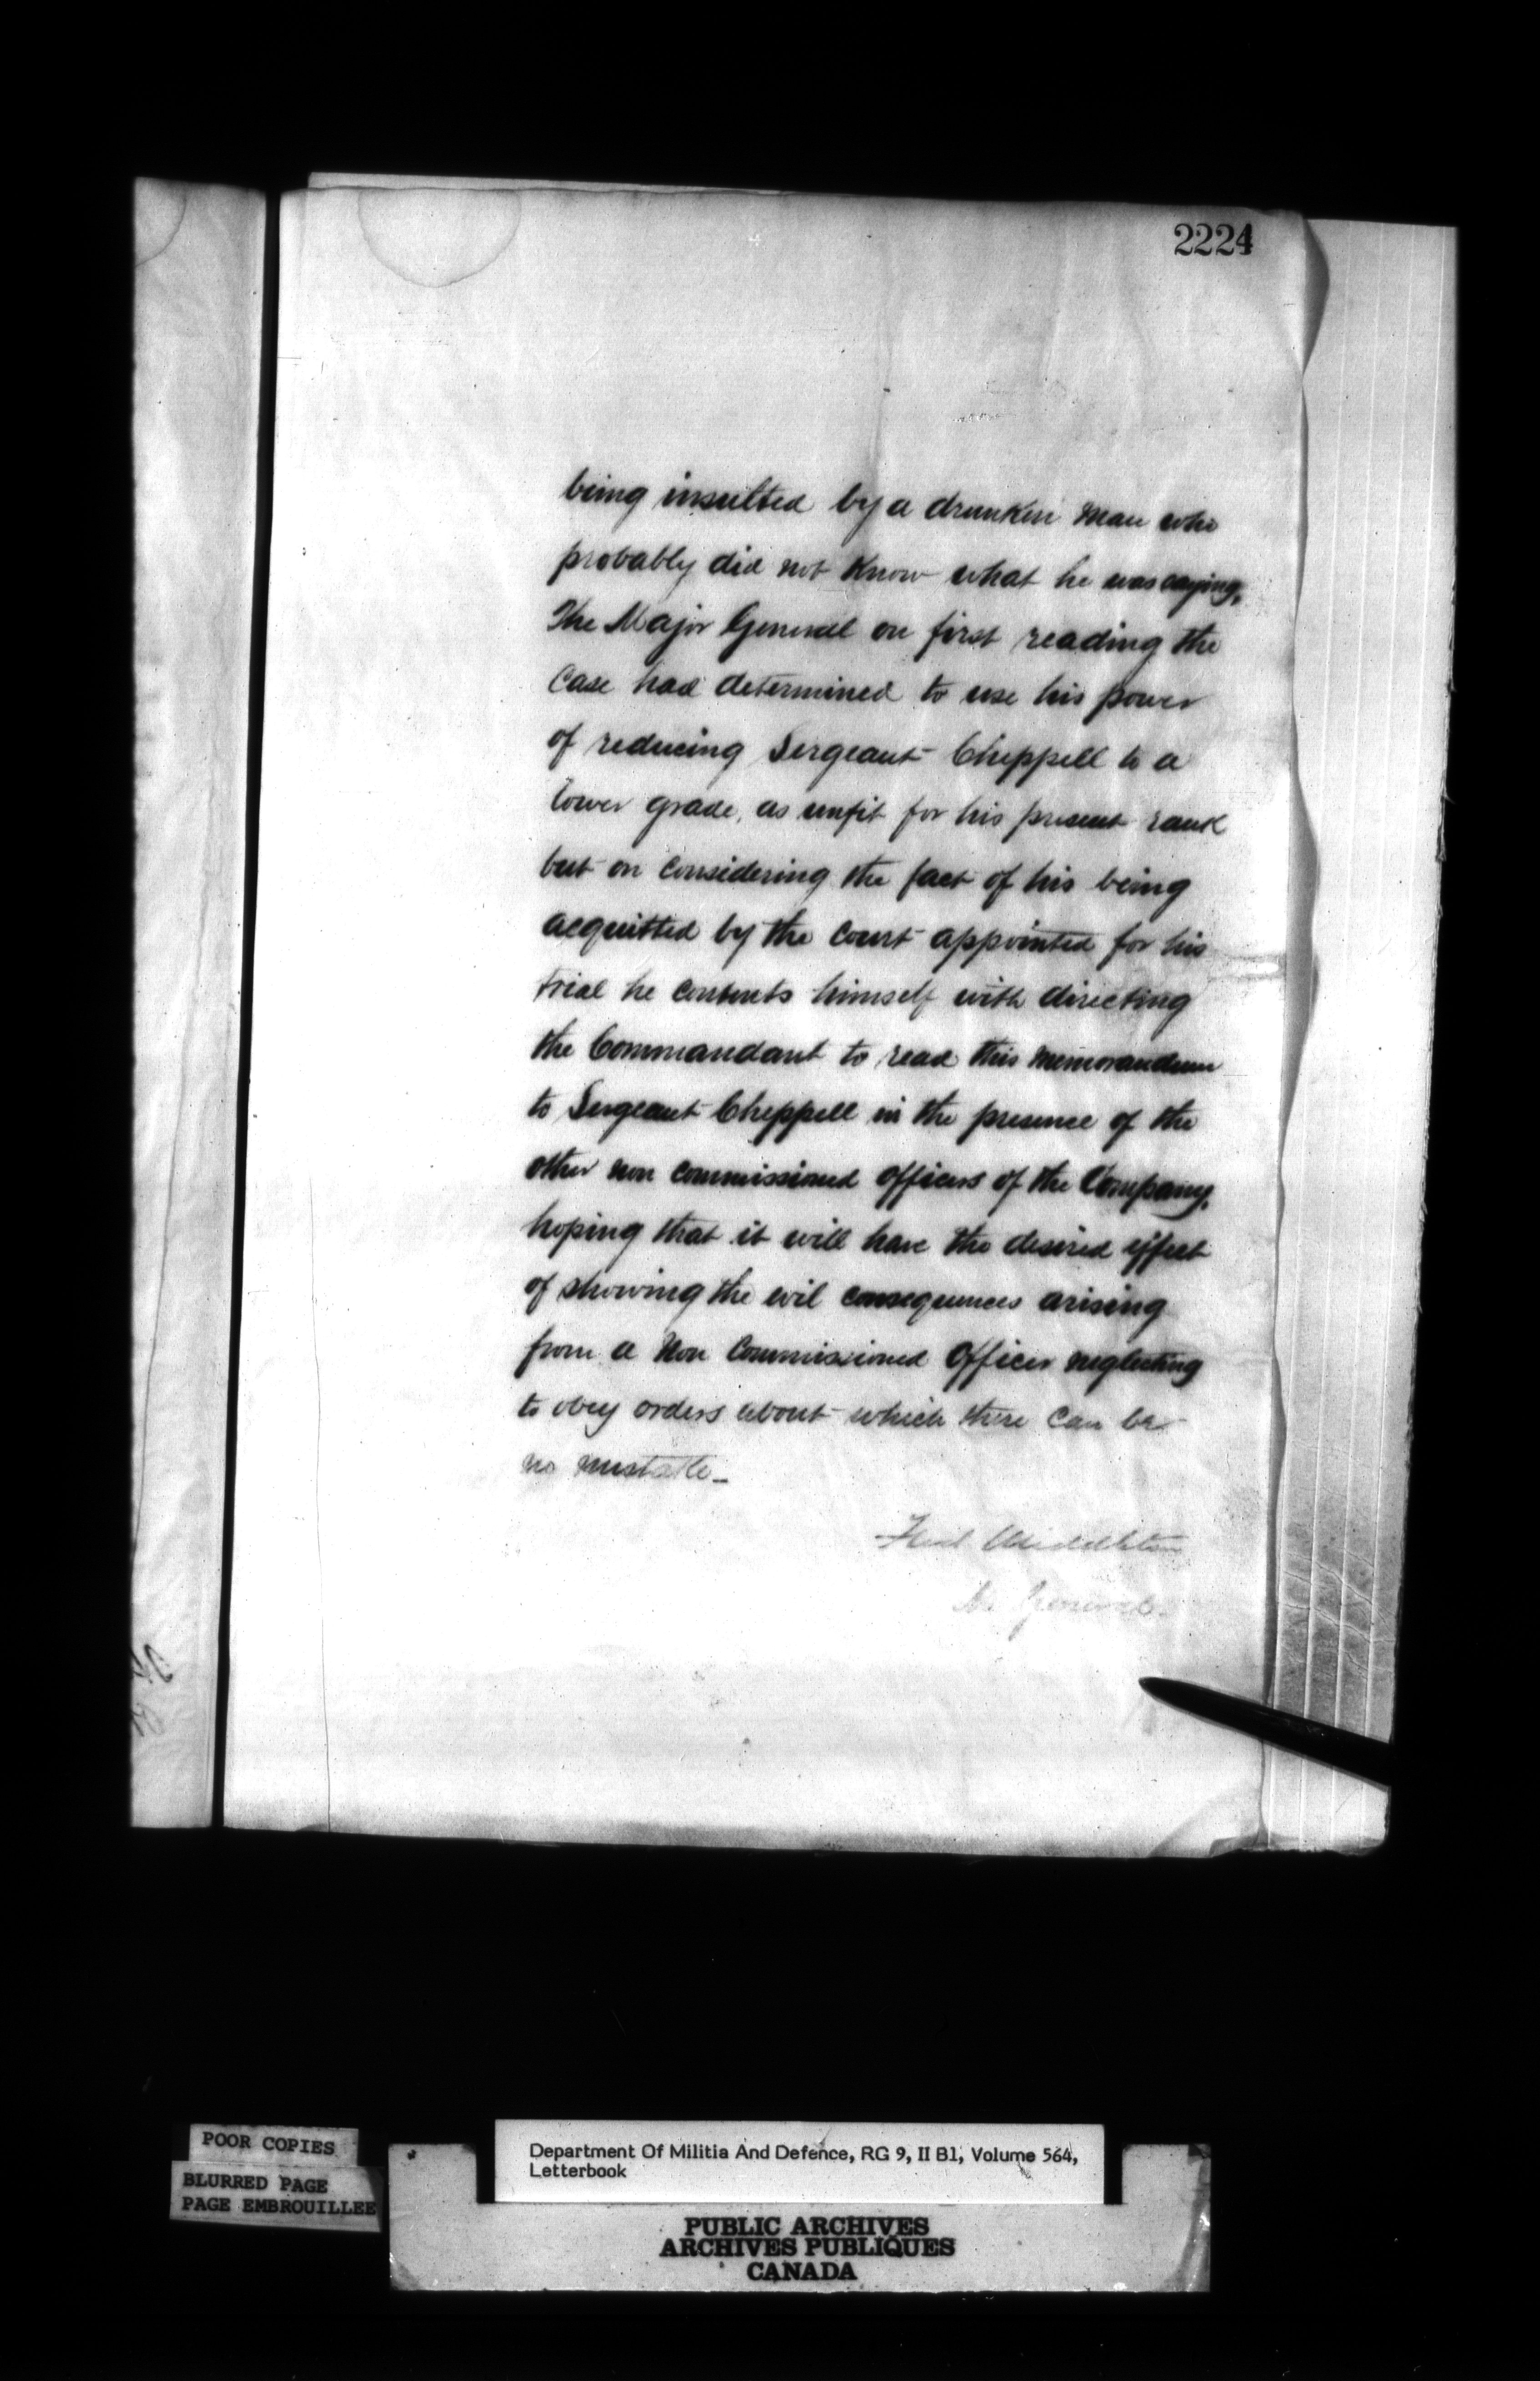 2224
being insulted by a drunken man who
probably did not know what he was saying.
The Major General on first reading the
case had determined to use his power
of reducing Sergeant Cheppell to a
lower grade, as unfit for his present rank
but on considering the fact of his being
acquitted by the Court appointed for his
trial he contents himself with directing
the Commandant to read this memorandum
to Sergeant Cheppell in the presence of the
other non commissioned officers of the Company,
hoping that it will have the desired effect
of showing the evil consequences arising
from a Non Commissioned Officer neglecting
to obey orders about which there can be
no mistake_
Fred Middleton
General
POOR COPIES
BLURRED PAGE
PAGE EMBROUILLEE
Department Of Militia And Defence, RG 9, II B1, Volume 564,
Letterbook
PUBLIC ARCHIVES
ARCHIVES PUBLIQUES
CANADA